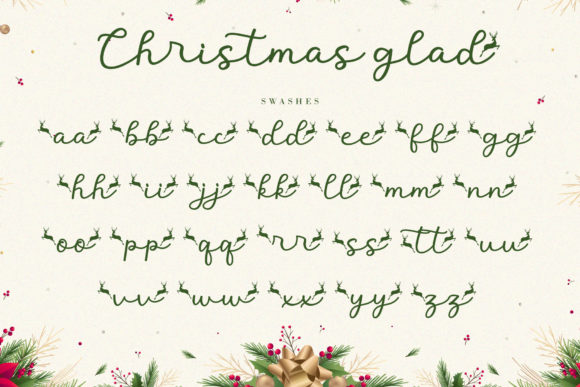 Christmas glad
SWASHES
aa bb cc dd ee ff gg
hh ii jj kk ll mm nn
oo pp qq rr ss tt uu
vv ww xx yy zz